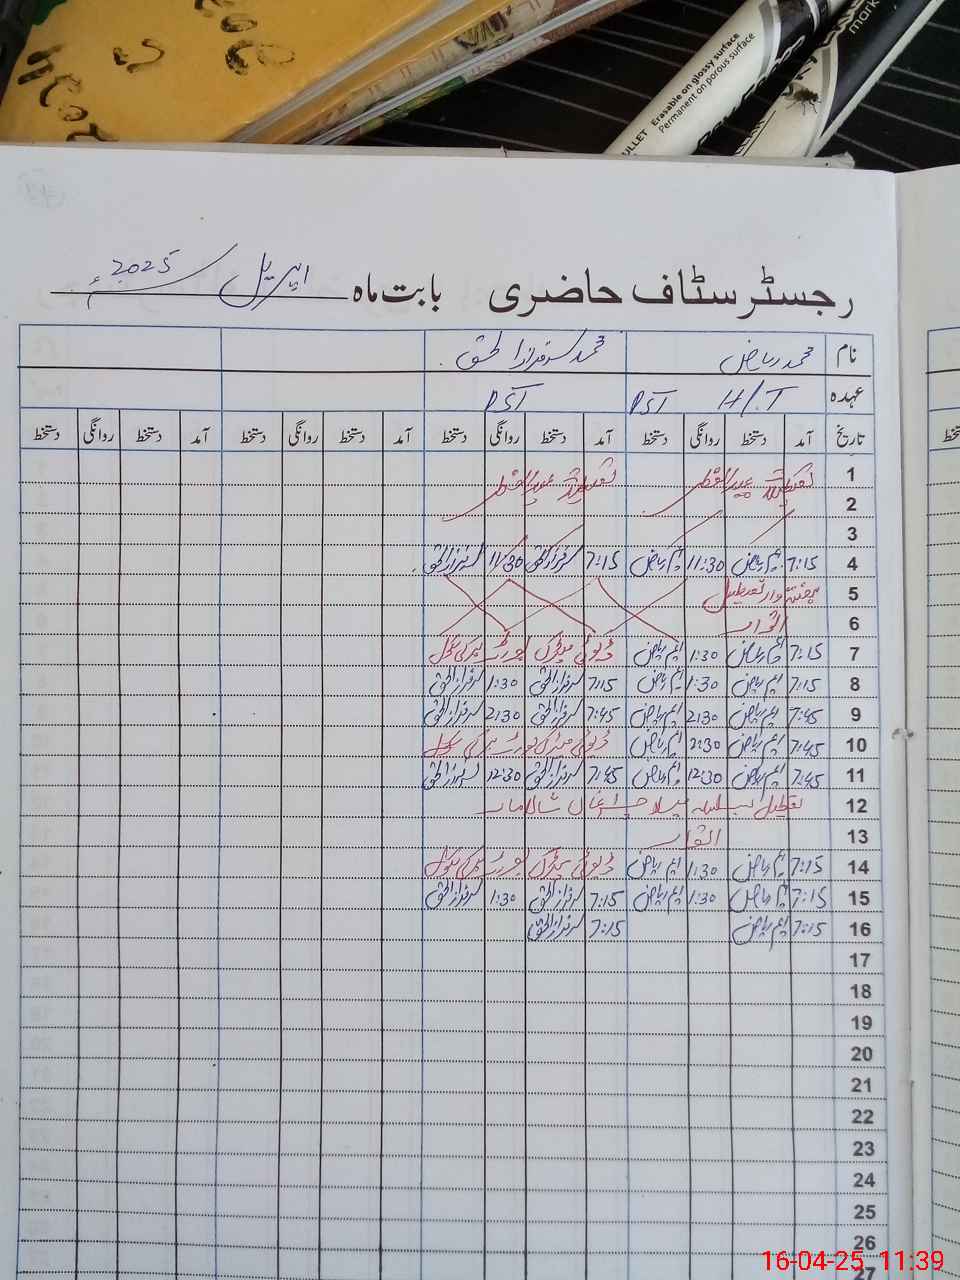 Erasable on glossy surface
Permanent on porous surface
mark
رجسٹر سٹاف حاضری بابت ماہ اپریل 2025ء
نام محمد ریاض محمد سرفراز الحق
عہدہ H/T PST PST
تاریخ آمد دستخط روانگی دستخط آمد دستخط روانگی دستخط آمد دستخط روانگی دستخط آمد دستخط روانگی دستخط
1 تعطیلات عیدالفطر تعطیلات عیدالفطر
2
3
4 7:15 ایم ریاض 11:30 ایم ریاض 7:15 سرفراز الحق 11/30 سرفراز الحق
5 ہفتہ وار تعطیل
6 اتوار
7 7:15 ایم ریاض 1:30 ایم ریاض ڈیوٹی میٹرک بورڈ
8 7:15 ایم ریاض 1:30 ایم ریاض 7:15 سرفراز الحق 1:30 سرفراز الحق
9 7:45 ایم ریاض 2:30 ایم ریاض 7:45 سرفراز الحق 2:30 سرفراز الحق
10 7:45 ایم ریاض 2:30 ایم ریاض ڈیوٹی میٹرک بورڈ
11 7:45 ایم ریاض 12:30 ایم ریاض 7:45 سرفراز الحق 12:30 سرفراز الحق
12 تعطیل بسلسلہ میلا چراغاں شالامار
13 اتوار
14 7:15 ایم ریاض 1:30 ایم ریاض ڈیوٹی میٹرک بورڈ
15 7:15 ایم ریاض 1:30 ایم ریاض 7:15 سرفراز الحق 1:30 سرفراز الحق
16 7:15 ایم ریاض 7:15 سرفراز الحق
17
18
19
20
21
22
23
24
25
26
27
16-04-25 11:39